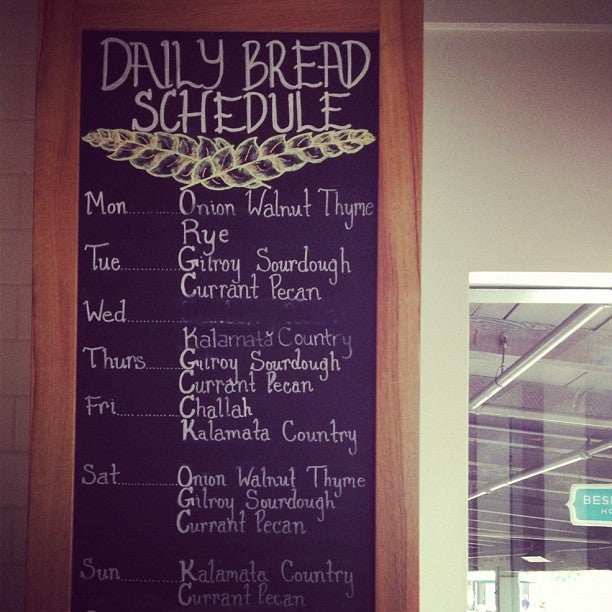 DAILY BREAD
SCHEDULE
Mon.......... Onion Walnut Thyme
Rye
Tue.......... Gilroy Sourdough
Currant Pecan
Wed..........
Kalamata Country
Thurs........ Gilroy Sourdough
Currant Pecan
Fri.......... Challah
Kalamata Country
Sat.......... Onion Walnut Thyme
Gilroy Sourdough
Currant Pecan
Sun.......... Kalamata Country
Currant Pecan
BES
HO